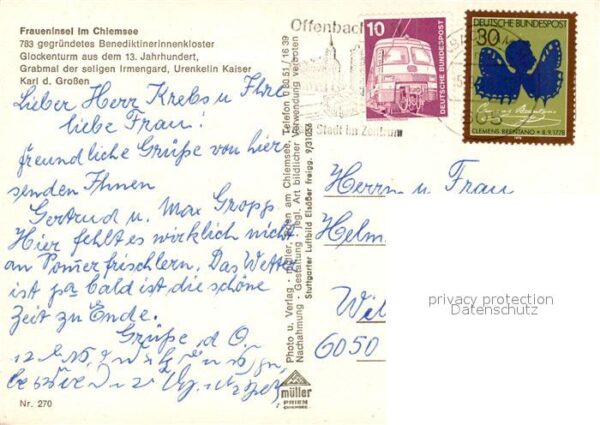 Fraueninsel im Chiemsee
783 gegründetes Benediktinerinnenkloster
Glockenturm aus dem 13. Jahrhundert,
Grabmal der seligen Irmengard, Urenkelin Kaiser
Karl d. Großen
Lieber Herr Krebs u Ihre
liebe Frau!
freundliche Grüße von hier
senden Ihnen
Gertrud u. Max Gropp
Hier fehlt es wirklich nicht
an Das Wetter
ist ja bald ist die schöne
Zeit zu Ende.
Grüße d O.
Nr. 270
Photo u. Verlag · müller, Prien am Chiemsee, Telefon 0 80 51 / 16 39
Nachdruck · Gestaltung · jegl. Art bildlicher Verwendung verboten
Stuttgarter Luftbild Elsäßer freigg. 9/31056
müller
PRIEN
CHIEMSEE
Offenbach
Stadt im Zentrum
10
DEUTSCHE BUNDESPOST
DEUTSCHE BUNDESPOST
30
605
CLEMENS BRENTANO * 8.9.1778
Herrn u Frau
Helm
6050
privacy protection
Datenschutz